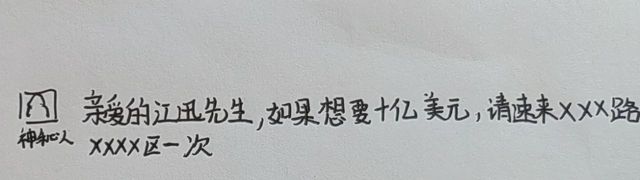 亲爱的江迅先生,如果想要十亿美元,请速来XXX路
神秘人
XXXX区一次